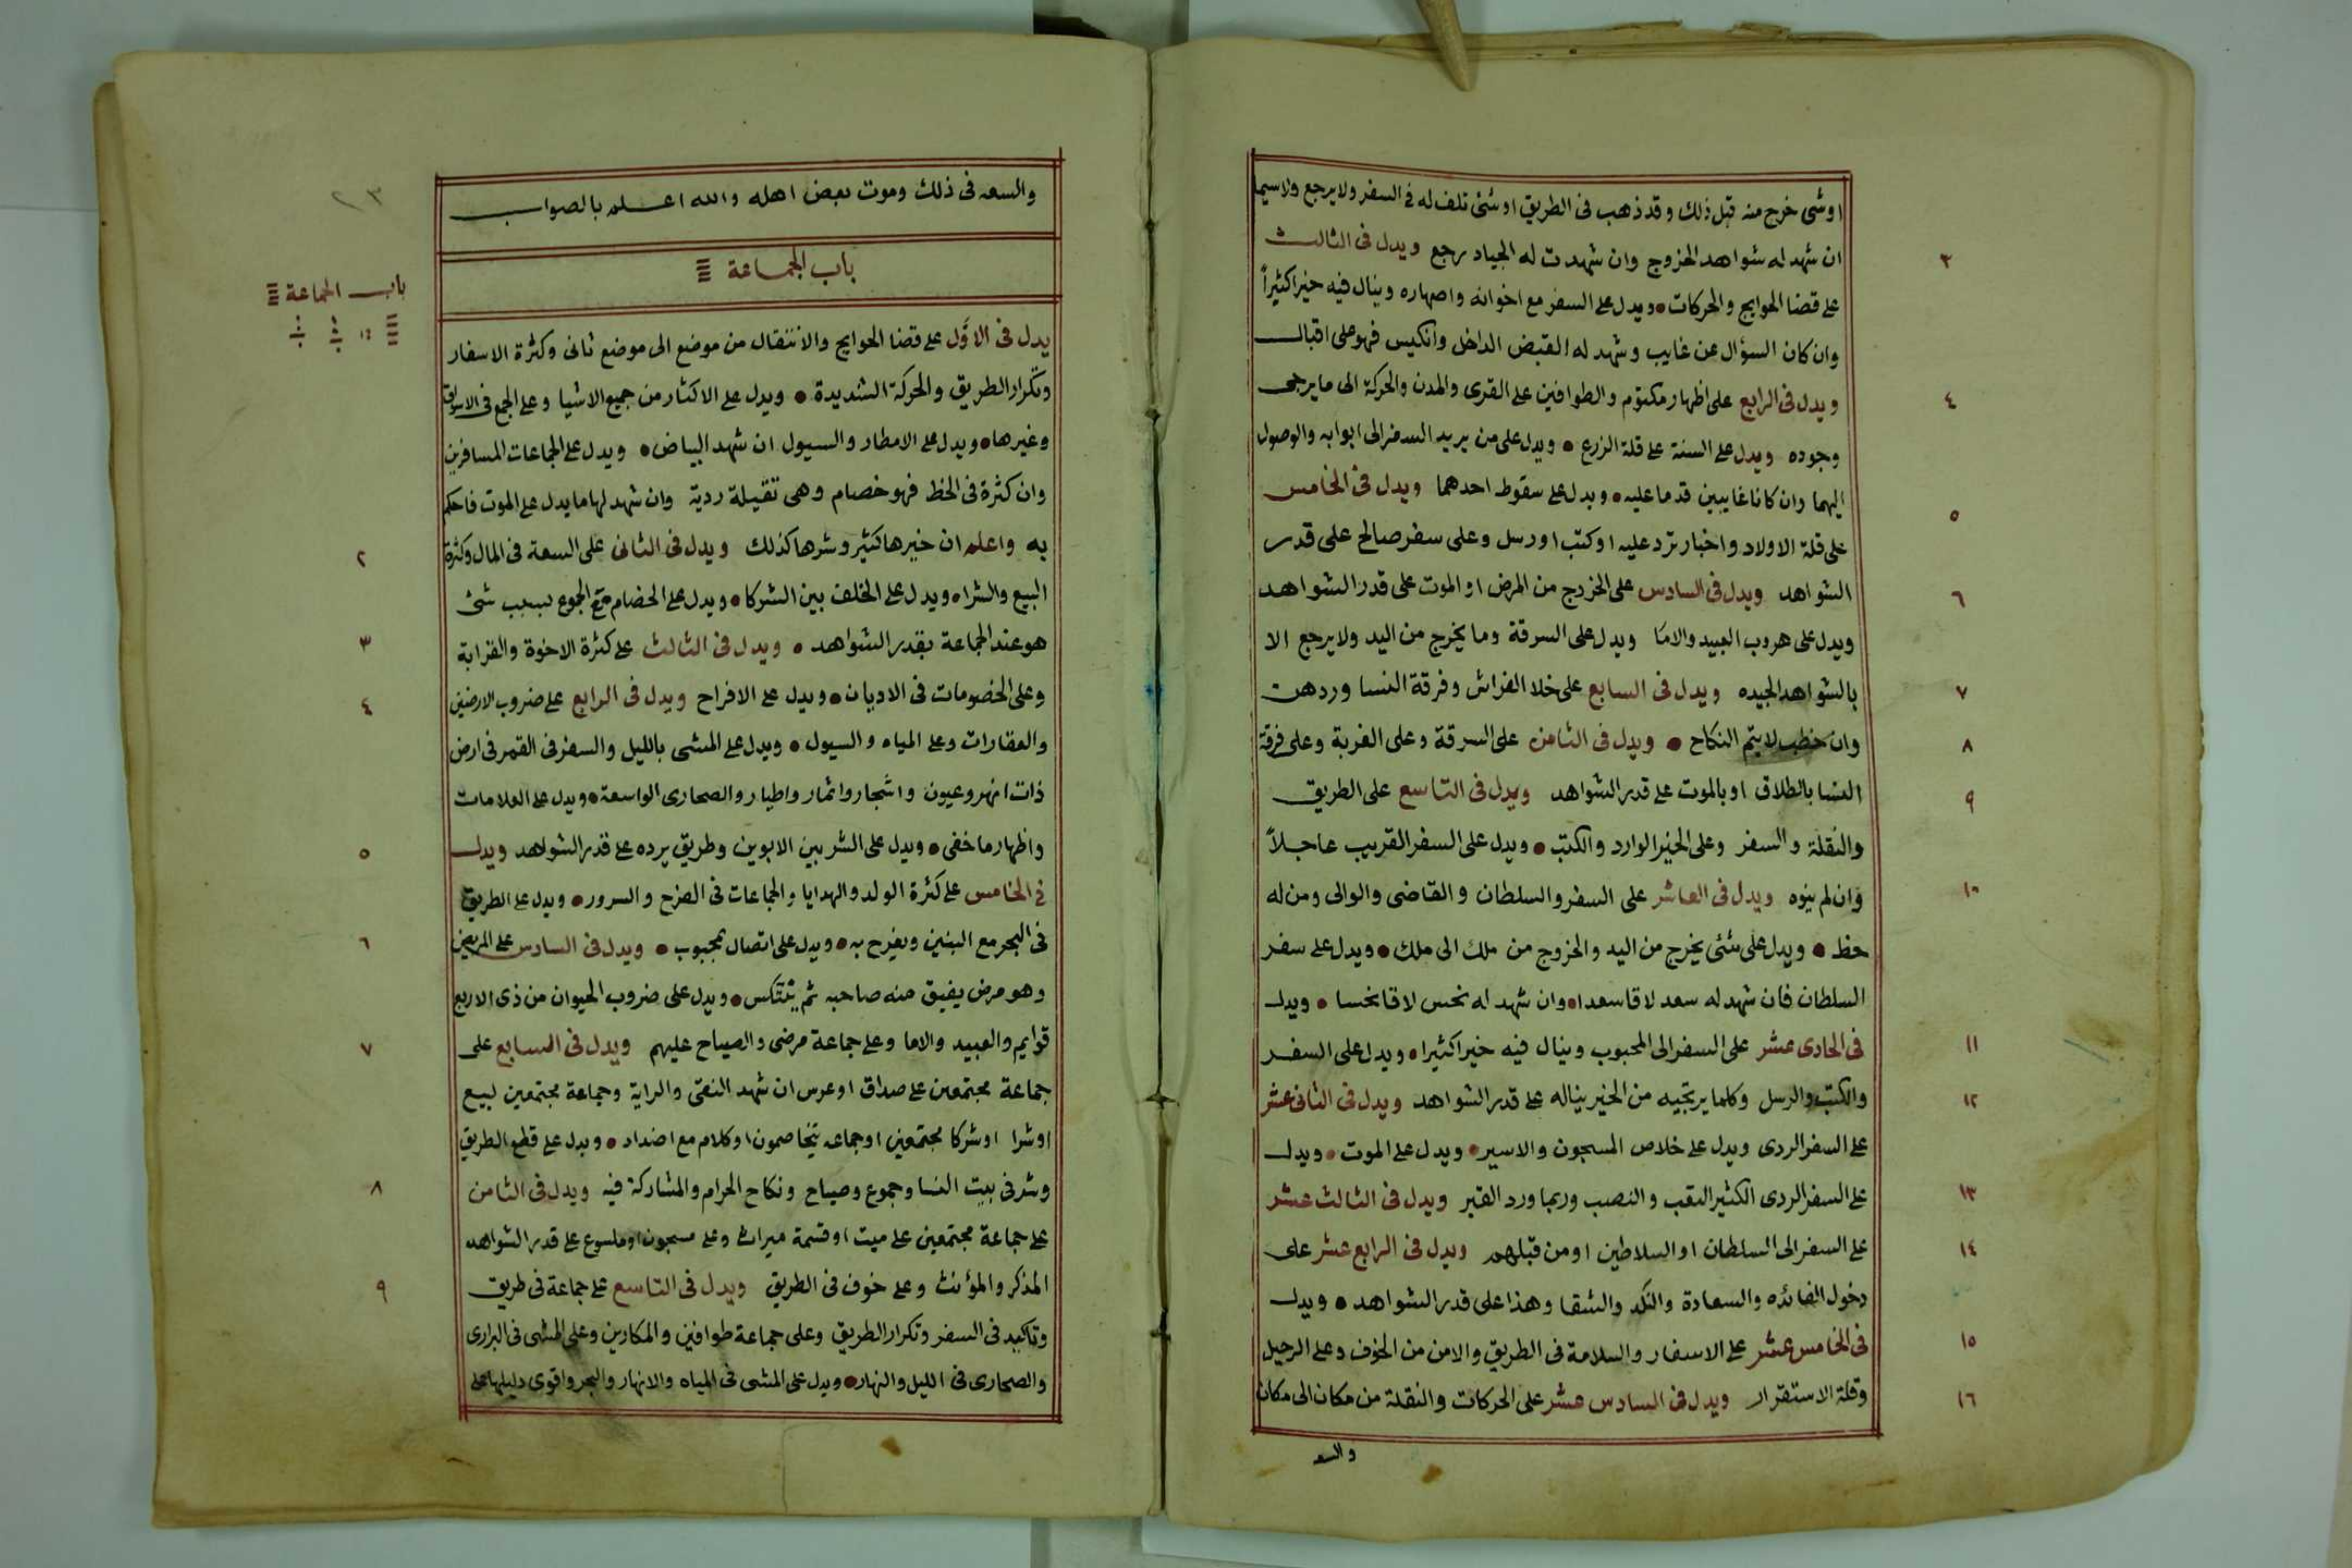 اوشى خرج منه قبل ذلك وقد ذهب فى الطريق اوشئ تلف له فى السفر ولايرجع ولاسيما
ان شهد له شواهد الخروج وان شهدت له الجياد رجع ويدل فى الثالث
٣
على قضا الحوايج والحركات • ويدل على السفر مع اخوانه واصهاره وينال فيه خيرا كثيراً
وان كان السؤال عن غايب وشهد له القبض الداخل وانكيس فهو على اقبال
ويدل فى الرابع على اظهار مكتوم والطوافين على القرى والمدن والحركة الى ما يرجى
٤
وجوده ويدل على السنة على قلة الزرع • ويدل على من يريد السفر الى ابوابه والوصول
اليهما وان كانا غايبين قدما عليه • ويدل على سقوط احدهما ويدل فى الخامس
٥
على قلة الاولاد واخبار ترد عليه اوكتب اورسل وعلى سفر صالح على قدر
الشواهد ويدل فى السادس على الخروج من المرض او الموت على قدر الشواهد
٦
ويدل على هروب العبيد والاما ويدل على السرقة وما يخرج من اليد ولايرجع الا
بالشواهد الجيده ويدل فى السابع على خلا الفراش وفرقة النسا وردهن
٧
وان خطب لايتم النكاح • ويدل فى الثامن على السرقة وعلى الغربة وعلى فرقة
٨
النسا بالطلاق اوبالموت على قدر الشواهد ويدل فى التاسع على الطريق
٩
والنقلة والسفر وعلى الخير الوارد والكتب • ويدل على السفر القريب عاجلاً
وان لم ينوه ويدل فى العاشر على السفر والسلطان والقاضى والوالى ومن له
١٠
حظ • ويدل على شئ يخرج من اليد والخروج من ملك الى ملك • ويدل على سفر
السلطان فان شهد له سعد لاقا سعدا • وان شهد له نحس لاقا نحسا • ويدل
فى الحادى عشر على السفر الى المحبوب وينال فيه خيرا كثيرا • ويدل على السفر
١١
والكتب والرسل وكلما يرتجيه من الخير يناله على قدر الشواهد ويدل فى الثانى عشر
١٢
على السفر الردى ويدل على خلاص المسجون والاسير • ويدل على الموت • ويدل
على السفر الردى الكثير التعب والنصب وربما ورد القبر ويدل فى الثالث عشر
١٣
على السفر الى السلطان او السلاطين اومن قبلهم ويدل فى الرابع عشر على
١٤
دخول الفائده والسعادة والنكد والشقا وهذا على قدر الشواهد • ويدل
فى الخامس عشر على الاسفار والسلامة فى الطريق والامن من الخوف وعلى الرحيل
١٥
وقلة الاستقرار ويدل فى السادس عشر على الحركات والنقلة من مكان الى مكان
١٦
والسعه
٢٣
والسعه فى ذلك وموت بعض اهله والله اعلم بالصواب
باب الجماعة
باب الجماعة
يدل فى الاوَّل على قضا الحوايج والانتقال من موضع الى موضع ثانى وكثرة الاسفار
وتكرار الطريق والحركة الشديدة • ويدل على الاكثار من جميع الاشيا وعلى الجمع فى الاسواق
وغيرها • ويدل على الامطار والسيول ان شهد البياض • ويدل على الجماعات المسافرين
وان كثرة فى الخط فهو خصام وهى ثقيلة ردية وان شهد لها ما يدل على الموت فاحكم
به واعلم ان خيرها كثير وشرها كذلك ويدل فى الثانى على السعة فى المال وكثرة
٢
البيع والشرا • ويدل على الخلف بين الشركا • ويدل على الخصام مع الجموع بسبب شئ
هو عند الجماعة بقدر الشواهد • ويدل فى الثالث على كثرة الاخوة والقرابة
٣
وعلى الخصومات فى الاديان • ويدل على الافراح ويدل فى الرابع على ضروب الارضين
٤
والعقارات وعلى المياه والسيول • ويدل على المشى بالليل والسفر فى القمر فى ارض
ذات انهر وعيون واشجار واثمار واطيار والصحارى الواسعة • ويدل على العلامات
واظهار ما خفى • ويدل على الشر بين الابوين وطريق يرده على قدر الشواهد ويدل
٥
فى الخامس على كثرة الولد والهدايا والجماعات فى الفرح والسرور • ويدل على الطريق
فى البحر مع البنين ويفرح به • ويدل على اتصال بمحبوب • ويدل فى السادس على المريض
٦
وهو مرض يفيق منه صاحبه ثم ينتكس • ويدل على ضروب الحيوان من ذى الاربع
قوايم والعبيد والاما وعلى جماعة مرضى والصياح عليهم ويدل فى السابع على
٧
جماعة مجتمعين على صداق اوعرس ان شهد النقى والراية وجماعة مجتمعين لبيع
اوشرا اوشركا مجتمعين اوجماعه يتخاصمون اوكلام مع اضداد • ويدل على قطع الطريق
وشر فى بيت النسا وجموع وصياح ونكاح الحرام والمشاركة فيه ويدل فى الثامن
٨
على جماعة مجتمعين على ميت اوقسمة ميراث وعلى مسجون اوملسوع على قدر الشواهد
المذكر والمؤنث وعلى خوف فى الطريق ويدل فى التاسع على جماعة فى طريق
٩
وتاكيد فى السفر وتكرار الطريق وعلى جماعة طوافين والمكارين وعلى المشى فى البرارى
والصحارى فى الليل والنهار • ويدل على المشى فى المياه والانهار والبحر واقوى دليلها على